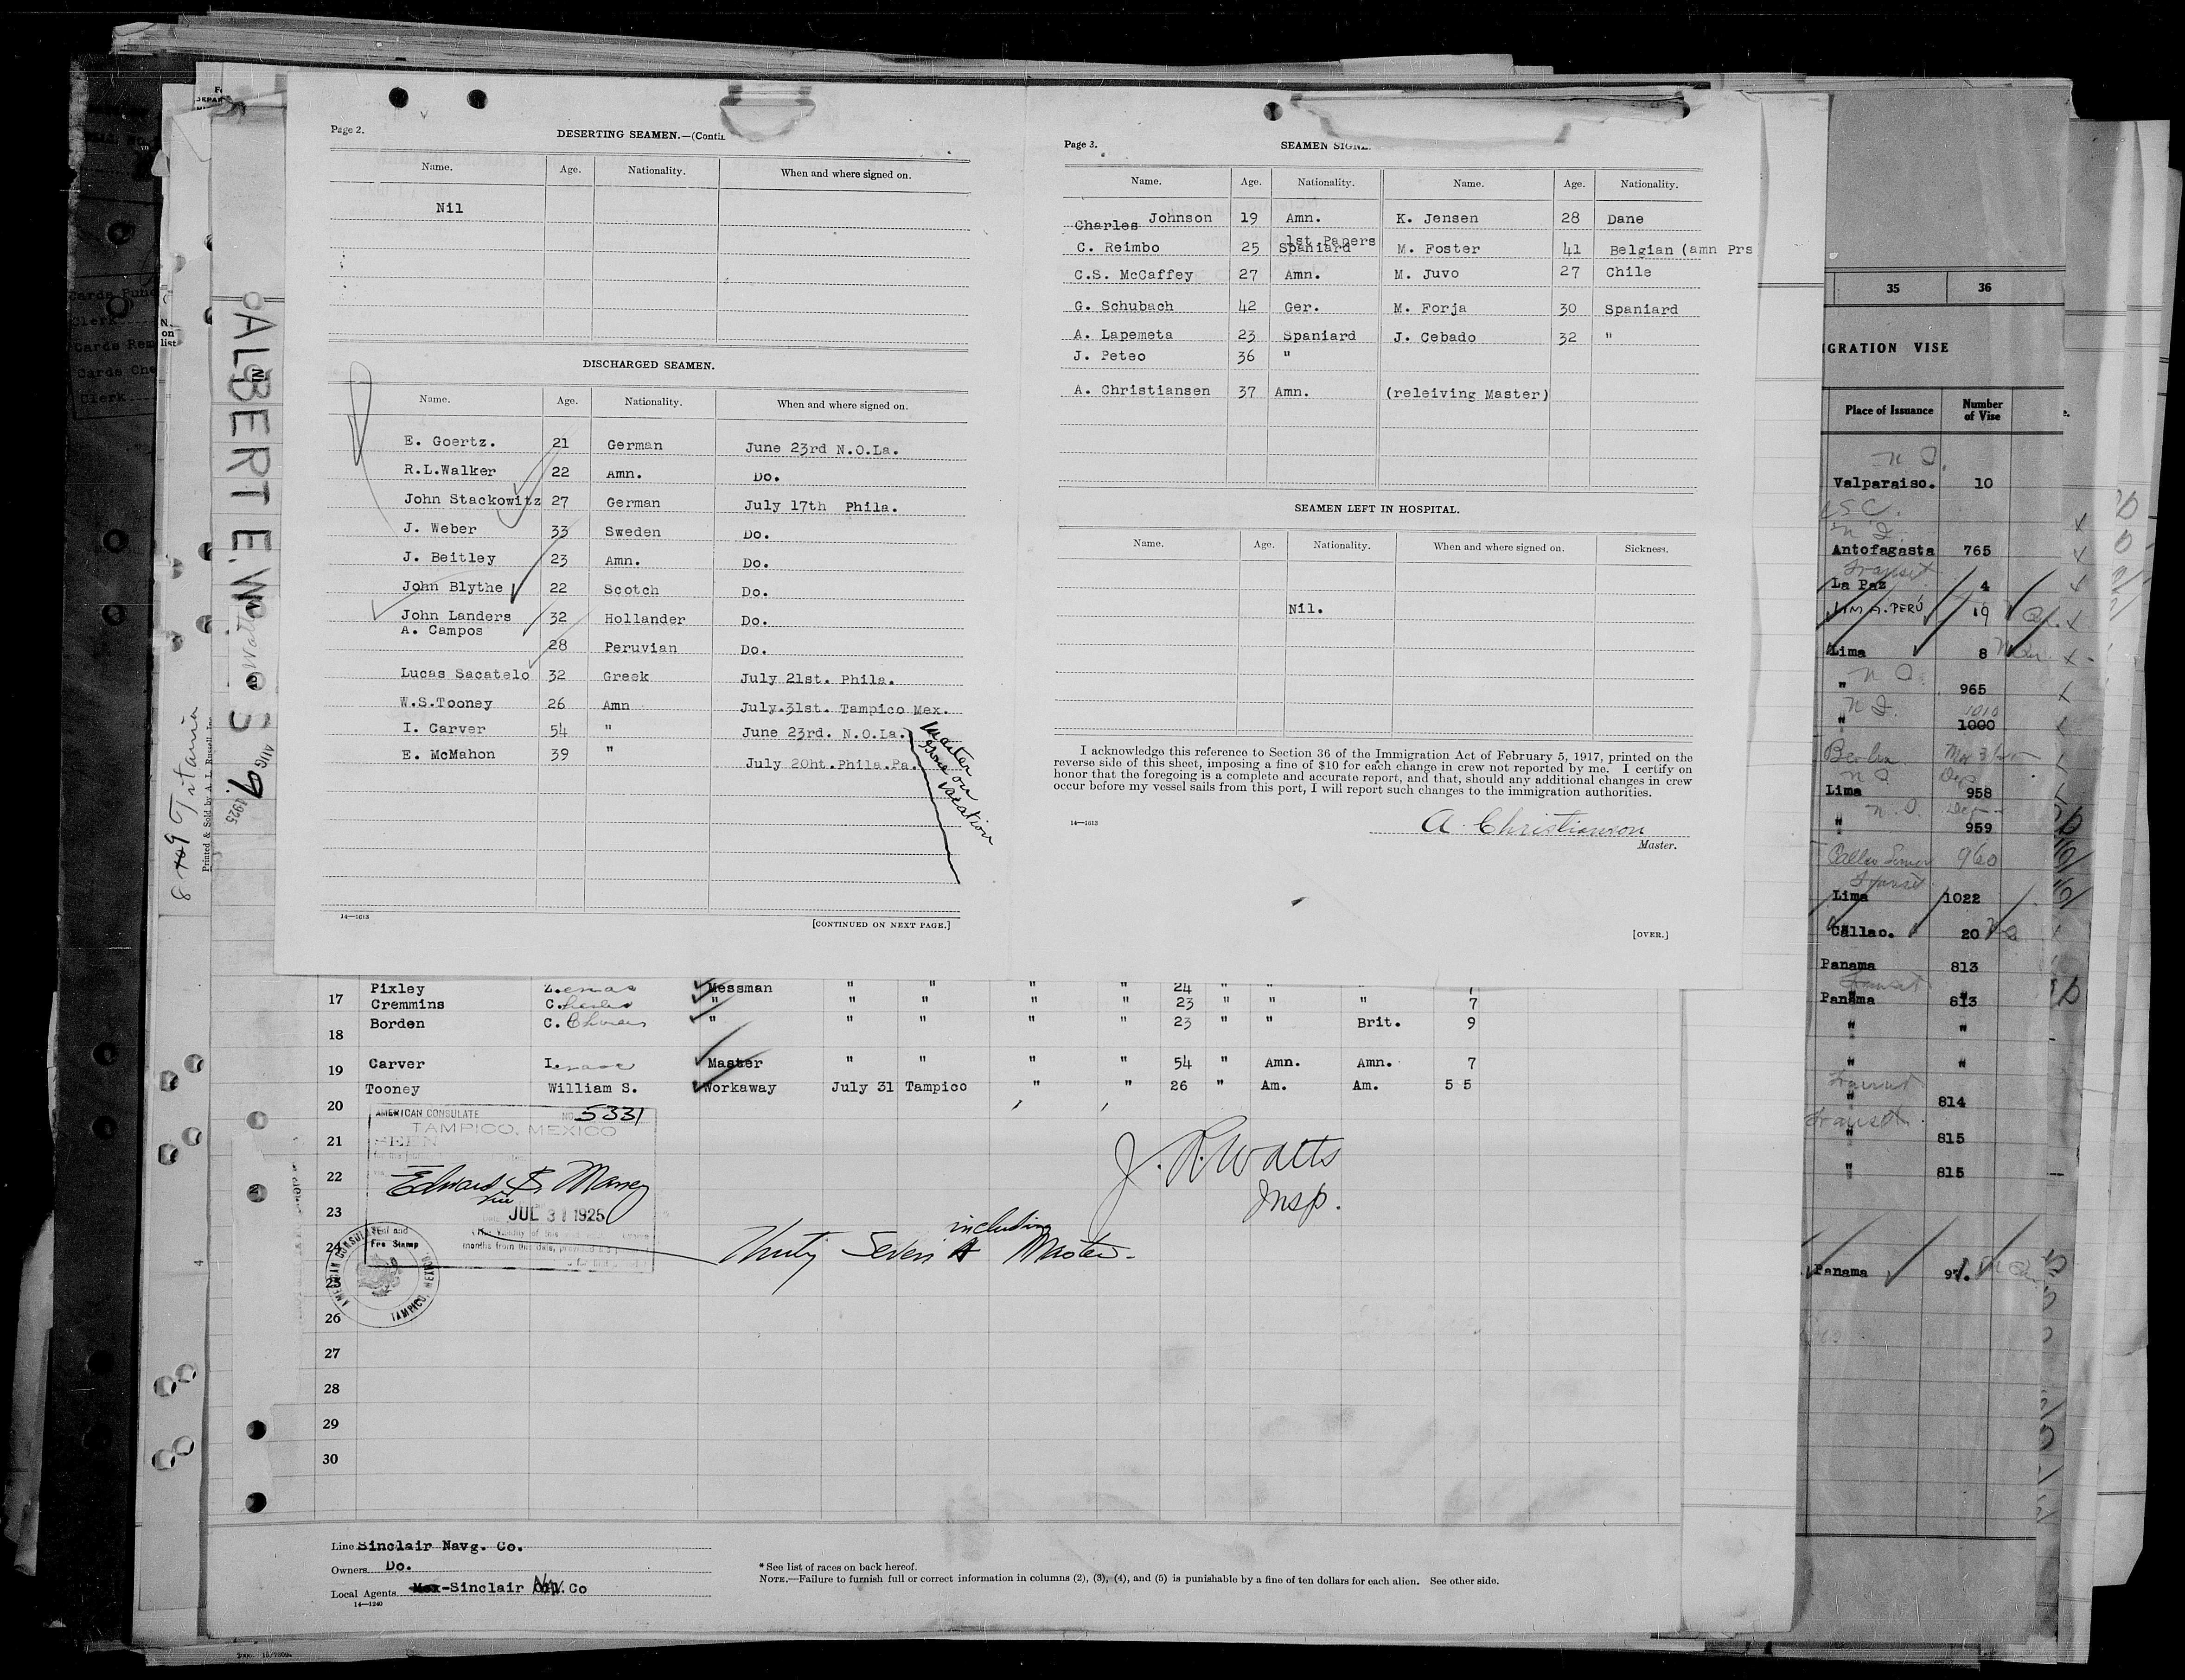 Page 2.
DESERTING SEAMEN.—(Contin
Name. Age. Nationality. When and where signed on.
Nil
DISCHARGED SEAMEN.
Name. Age. Nationality. When and where signed on.
E. Goertz. 21 German June 23rd N.O.La.
R.L.Walker 22 Amn. Do.
John Stackowitz 27 German July 17th Phila.
J. Weber 33 Sweden Do.
J. Beitley 23 Amn. Do.
John Blythe 22 Scotch Do.
John Landers 32 Hollander Do.
A. Campos 28 Peruvian Do.
Lucas Sacatelo 32 Greek July 21st. Phila.
W.S.Tooney 26 Amn July.31st. Tampico Mex.
I. Carver 54 " June 23rd. N.O.La.
E. McMahon 39 " July 20ht.Phila.Pa.
Master gone on vacation
14—1613
[CONTINUED ON NEXT PAGE.]
Page 3.
SEAMEN SIGNE
Name. Age. Nationality. Name. Age. Nationality.
Charles Johnson 19 Amn. K. Jensen 28 Dane
1st Papers
C. Reimbo 25 Spaniard M. Foster 41 Belgian (amn Prs
C.S. McCaffey 27 Amn. M. Juvo 27 Chile
G. Schubach 42 Ger. M. Forja 30 Spaniard
A. Lapemeta 23 Spaniard J. Cebado 32 "
J. Peteo 36 "
A. Christiansen 37 Amn. (releiving Master)
SEAMEN LEFT IN HOSPITAL.
Name. Age. Nationality. When and where signed on. Sickness.
Nil.
I acknowledge this reference to Section 36 of the Immigration Act of February 5, 1917, printed on the
reverse side of this sheet, imposing a fine of $10 for each change in crew not reported by me. I certify on
honor that the foregoing is a complete and accurate report, and that, should any additional changes in crew
occur before my vessel sails from this port, I will report such changes to the immigration authorities.
14—1613
A. Christianson
Master.
[OVER.]
ALBERT E. WATTS
AUG 9 1925
8409 Titania
Printed & Sold by A. L. Russell, Inc
Cards Punc
Clerk
Cards Rem
Cards Che
Clerk
No.
on
list
Pixley Messman " " " " 24 " " " 7
17 Cremmins Charles " " " " " 23 " " " 7
18 Borden C. " " " " " 23 " " Brit. 9
19 Carver Isaac Master " " " " 54 " Amn. Amn. 7
Tooney William S. Workaway July 31 Tampico " " 26 " Am. Am. 5 5
20
21
22
23
24
25
26
27
28
29
30
AMERICAN CONSULATE NO. 5331
TAMPICO, MEXICO
SEEN
Edward S. Maney
Vice
JUL 31 1925
Seal and
Fee Stamp
AMERICAN CONSULATE
TAMPICO, MEXICO.
J. R. Watts
Insp.
Thirty Seven including Master.
Line Sinclair Navg. Co.
Owners Do.
Local Agents Mex-Sinclair Nav. Co
14—1240
* See list of races on back hereof.
NOTE.—Failure to furnish full or correct information in columns (2), (3), (4), and (5) is punishable by a fine of ten dollars for each alien. See other side.
35 36
IGRATION VISE
Place of Issuance Number of Vise
Valparaiso. 10
Antofagasta 765
Transit
La Paz 4
LIMA. PERÚ 19
Lima 8
" 965
1010
" 1000
Berlin
Lima 958
" 959
Callao 960
Transit
Lima 1022
Callao. 20
Panama 813
Transit
Panama 813
" "
" "
Transit
" 814
Transit
" 815
" 815
Panama 97.